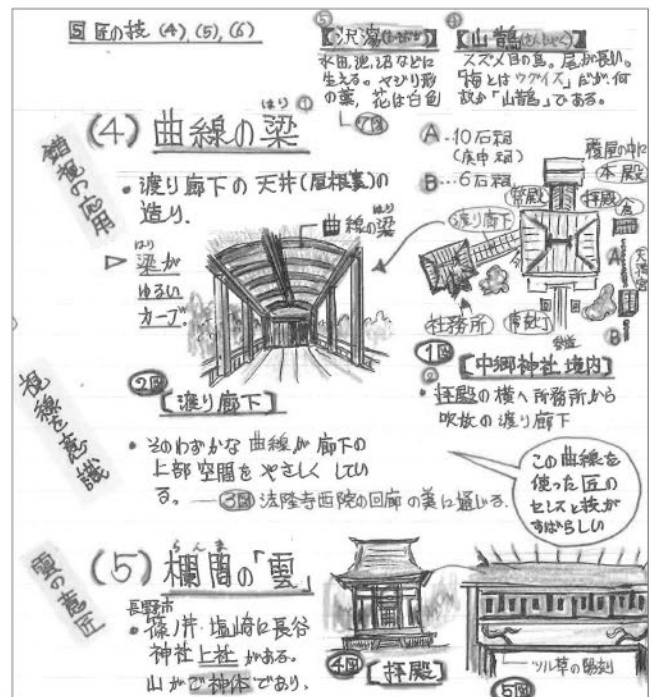 匠の技 (4), (5), (6)
⑤
【沢瀉(おもだか)】
水田、池、沼などに
生える。ヤジリ形
の葉、花は白色
⑦図
④
【山鵲(さんじゃく)】
スズメ目の鳥。尾が長い。
「梅とはウグイス」だが、何
故か「山鵲」である。
錯視の応用
(4) 曲線の梁
はり
①
・渡り廊下の天井(屋根裏)の
造り.
▷ 梁が
はり
ゆるい
カーブ。
曲線の梁
はり
②図
【渡り廊下】
A‥10石祠
(庚申祠)
B…6石祠
覆屋の中に
本殿
幣殿
拝殿
倉
渡り廊下
A
天満宮
社務所
B
①図
【中郷神社境内】
②
・拝殿の横へ所務所から
吹放の渡り廊下
視線を意識
・そのわずかな曲線が廊下の
上部空間をやさしくしてい
る。―③図 法隆寺西院の回廊の美に通じる.
この曲線を
使った匠の
センスと技が
すばらしい
雲の意匠
(5) 欄間の「雲」
らんま
長野市
・篠ノ井・塩崎に長谷
神社上社がある。
山がご神体であり、
④図
【拝殿】
ツル草の陽刻
⑤図